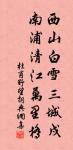 西山白雪三城戍
南浦清江萬里橋
杜甫野望詞典網集